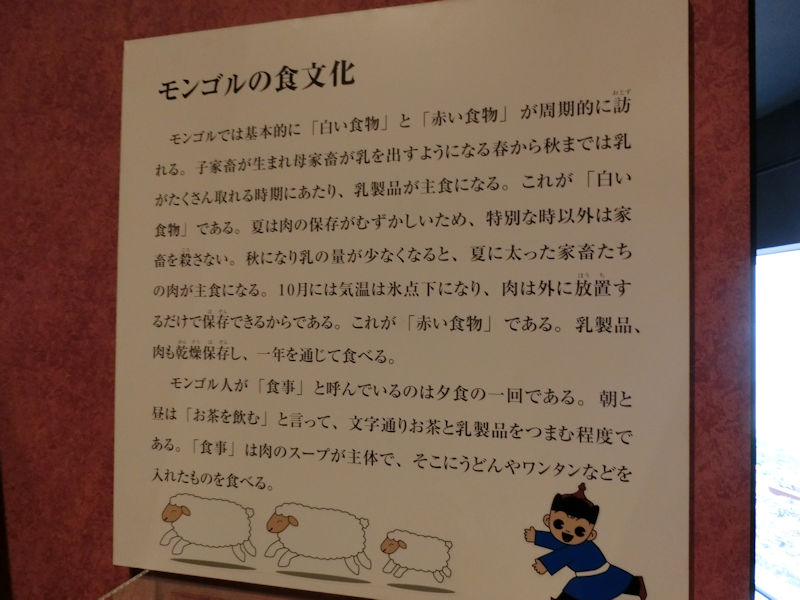 モンゴルの食文化
モンゴルでは基本的に「白い食物」と「赤い食物」が周期的に訪
れる。子家畜が生まれ母家畜が乳を出すようになる春から秋までは乳
がたくさん取れる時期にあたり、乳製品が主食になる。これが「白い
食物」である。夏は肉の保存がむずかしいため、特別な時以外は家
畜を殺さない。秋になり乳の量が少なくなると、夏に太った家畜たち
の肉が主食になる。10月には気温は氷点下になり、肉は外に放置す
るだけで保存できるからである。これが「赤い食物」である。乳製品、
肉も乾燥保存し、一年を通じて食べる。
モンゴル人が「食事」と呼んでいるのは夕食の一回である。朝と
昼は「お茶を飲む」と言って、文字通りお茶と乳製品をつまむ程度で
ある。「食事」は肉のスープが主体で、そこにうどんやワンタンなどを
入れたものを食べる。